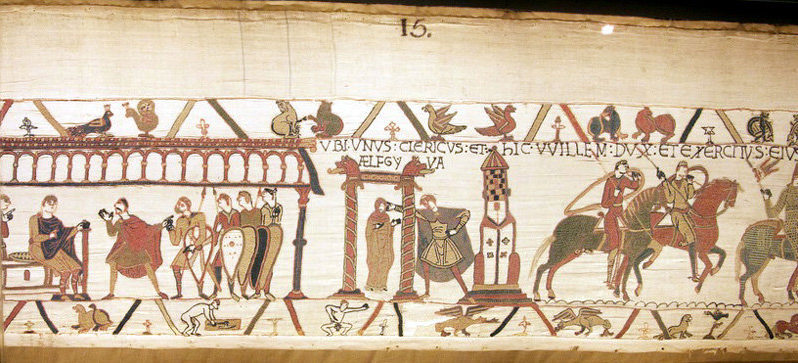 15.
VBI:VNVS:CLERICVS:ET:
ÆLFGY VA
HIC:VVILLEM:DVX:ET EXERCITVS:EIVS